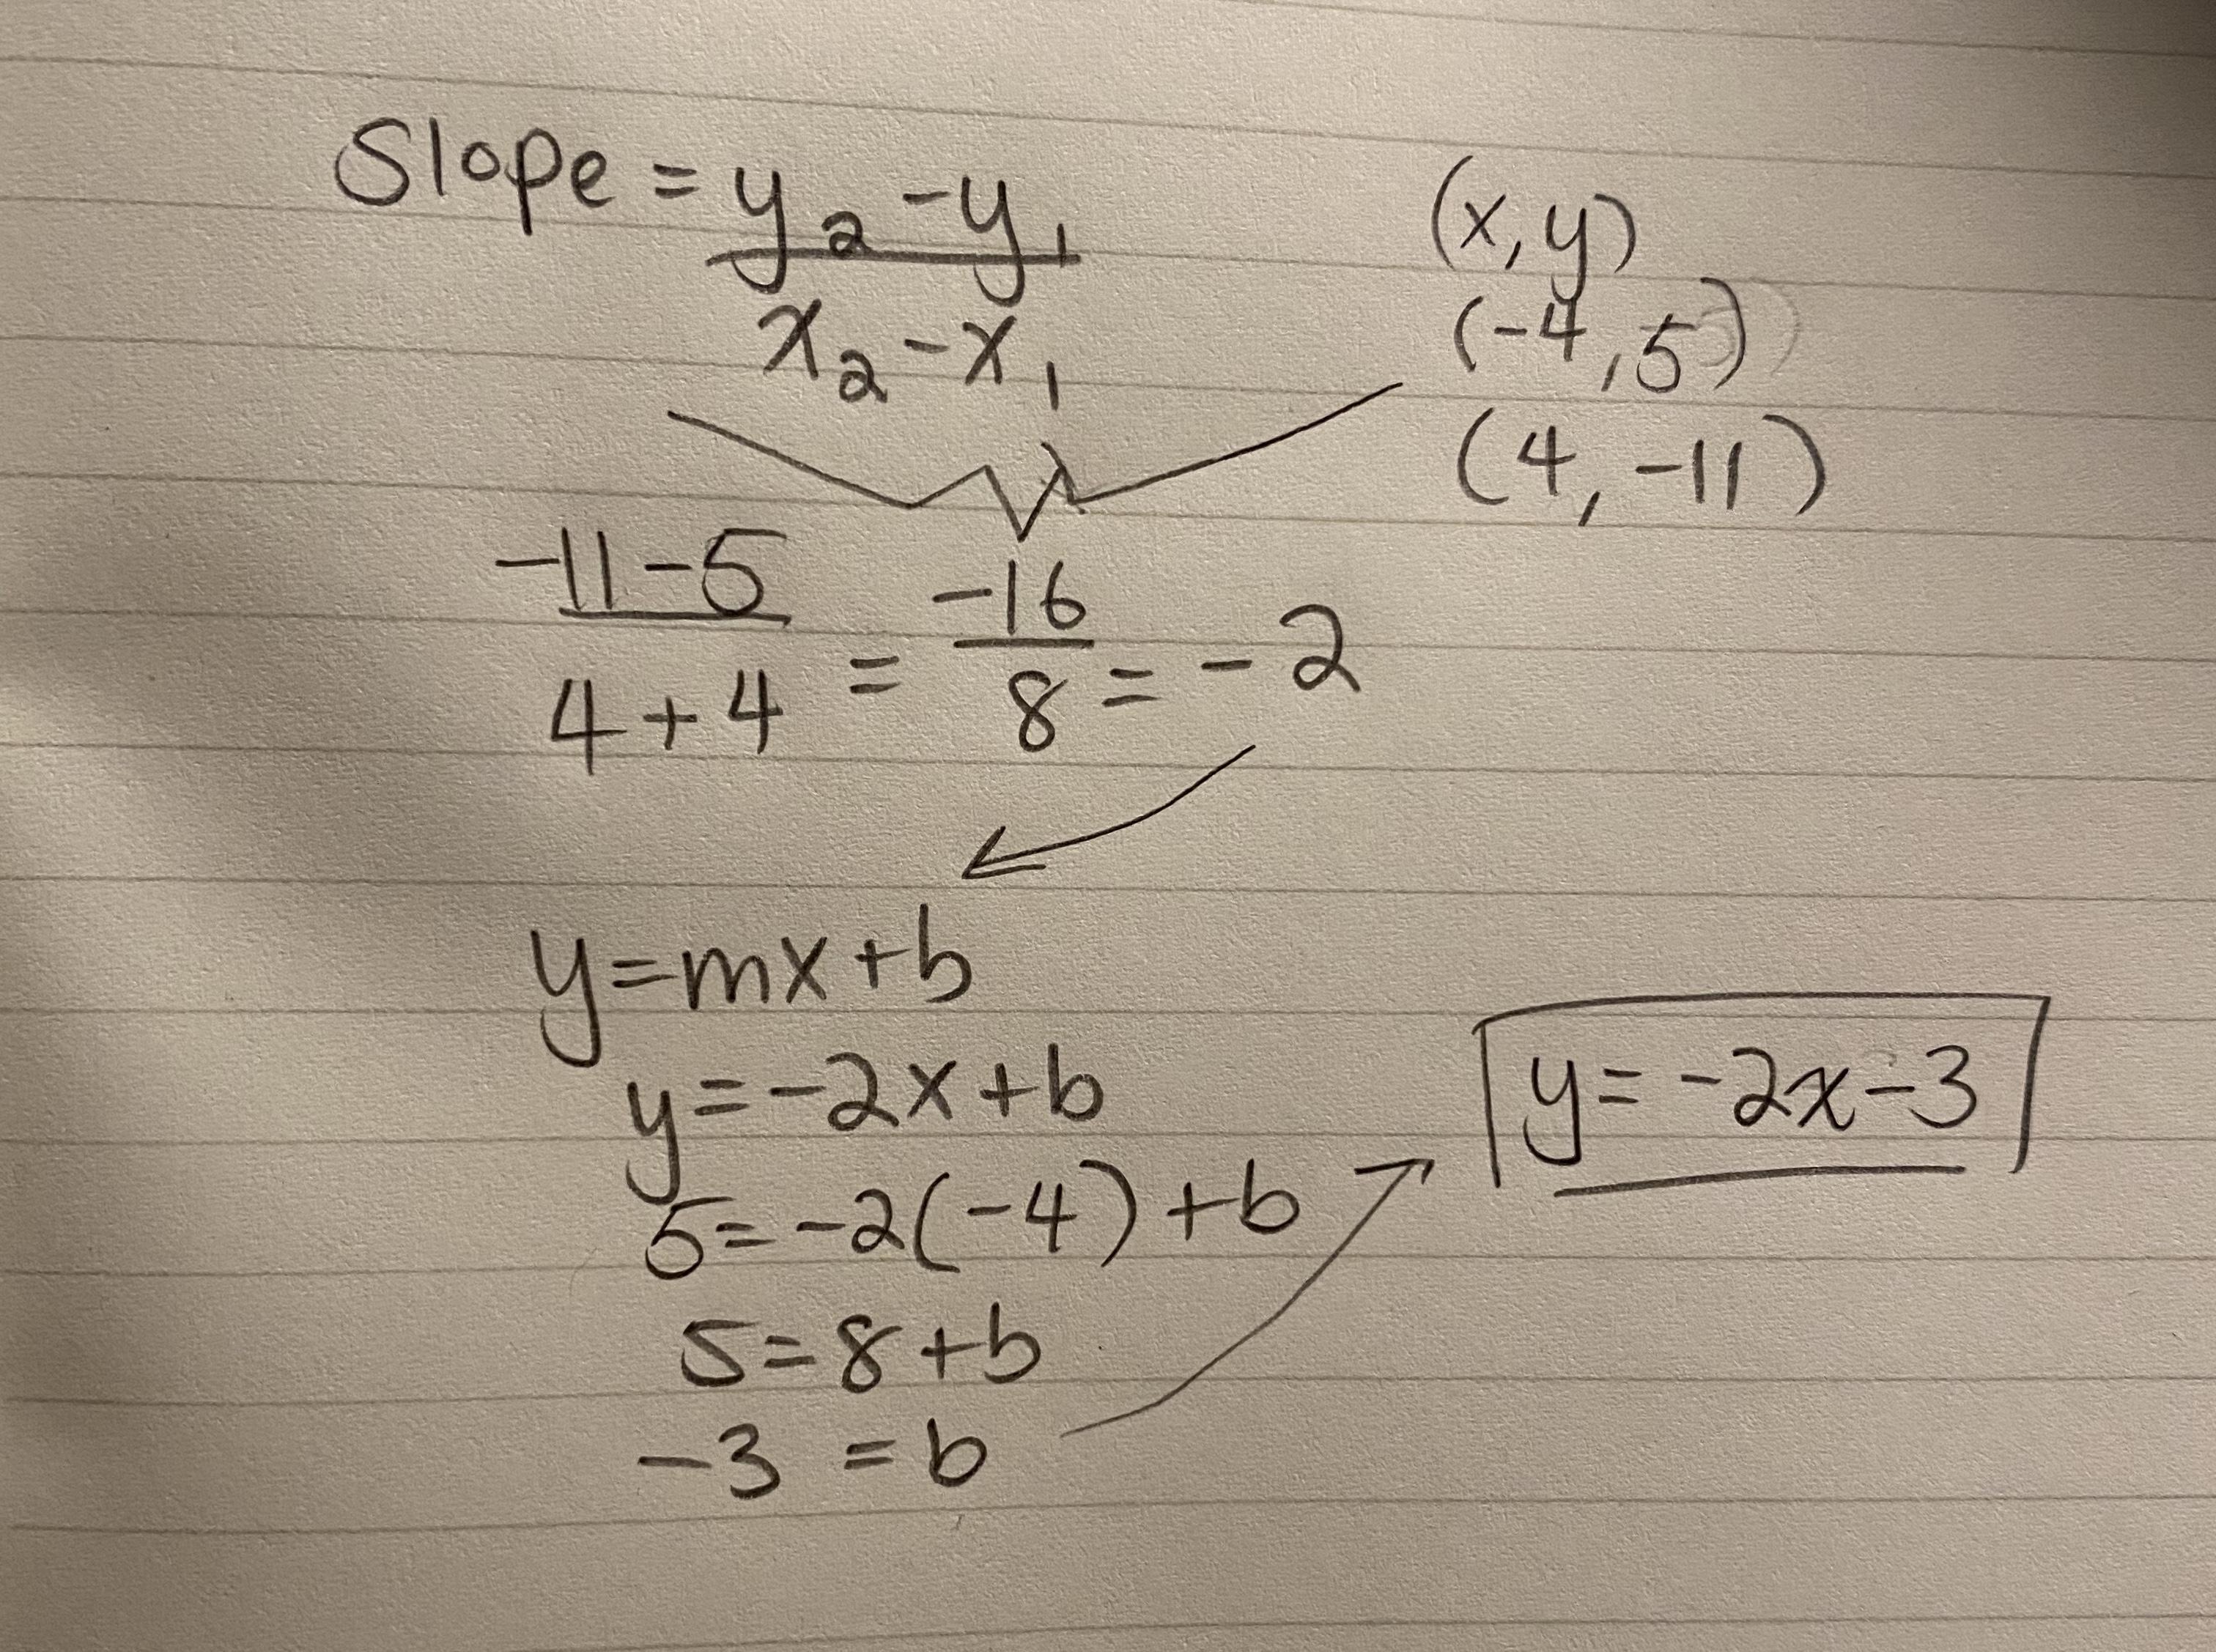 Slope = y₂ - y₁
x₂ - x₁
(x, y)
(-4, 5)
(4, -11)
-11 - 5
4 + 4
= -16
8
= -2
y = mx + b
y = -2x + b
5 = -2(-4) + b
5 = 8 + b
-3 = b
y = -2x - 3